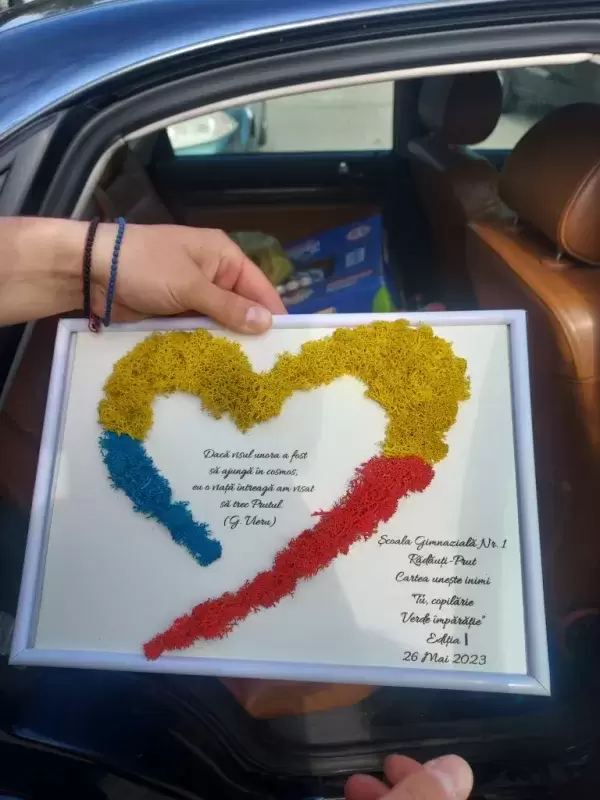 Dacă visul unora a fost
să ajungă în cosmos,
eu o viață întreagă am visat
să trec Prutul.
(G. Vieru)
Școala Gimnazială Nr. 1
Rădăuți-Prut
Cartea unește inimi
"Tu, copilărie
Verde împărăție"
Ediția I
26 Mai 2023